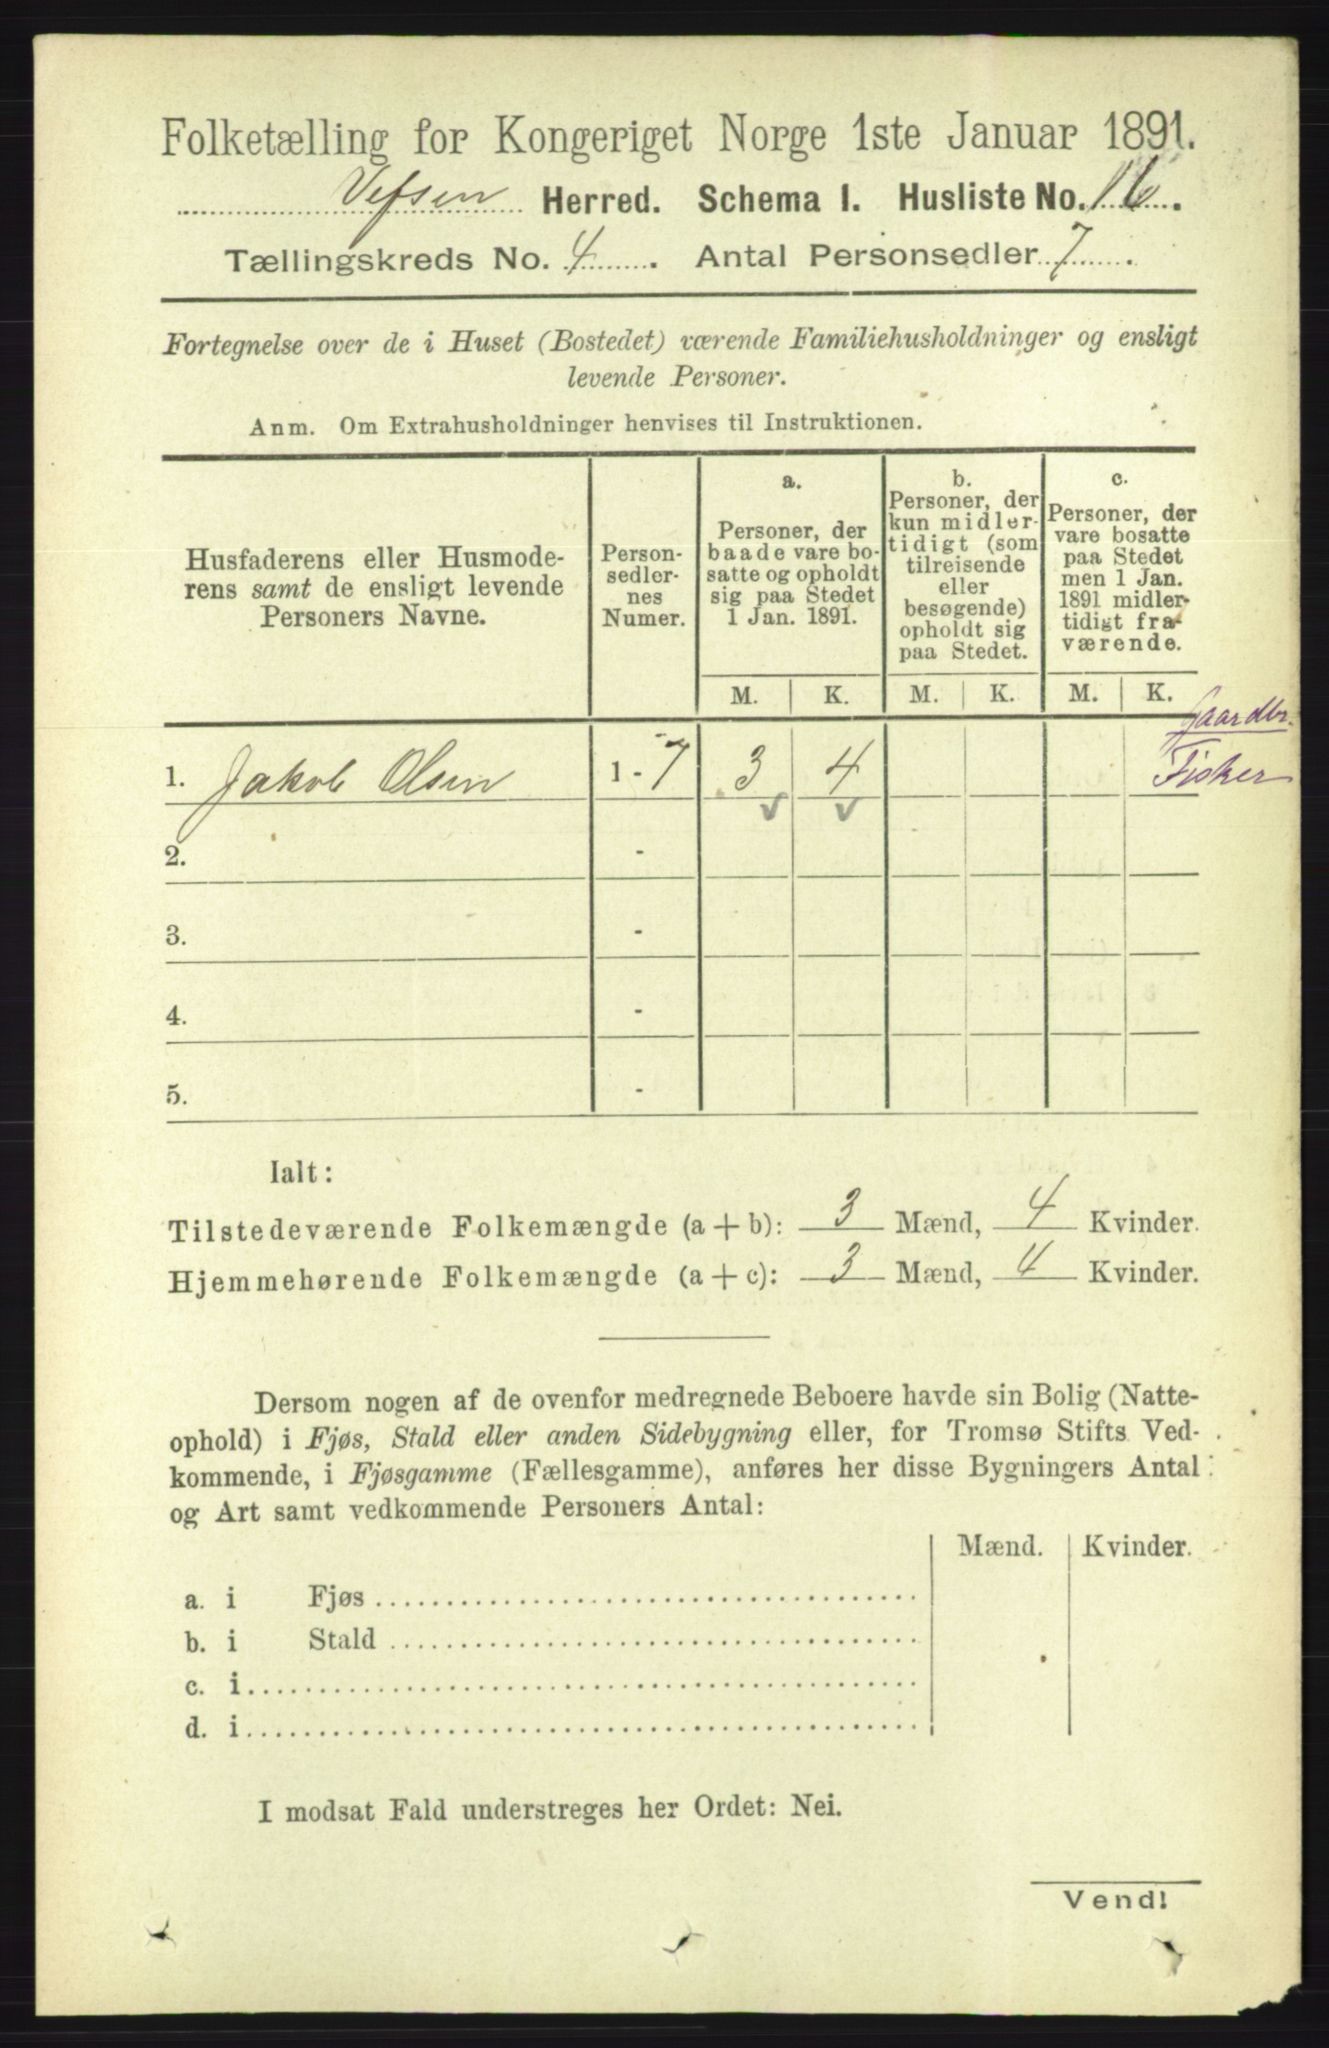 Folketælling for Kongeriget Norge 1ste Januar 1891.
Vefsen Herred. Schema I. Husliste No. 16.
Tællingskreds No. 4. Antal Personsedler 7.
Fortegnelse over de i Huset (Bostedet) værende Familiehusholdninger og ensligt
levende Personer.
Anm. Om Extrahusholdninger henvises til Instruktionen.
Husfaderens eller Husmode-
rens samt de ensligt levende
Personers Navne.
Person-
sedler-
nes
Numer.
a.
Personer, der
baade vare bo-
satte og opholdt
sig paa Stedet
1 Jan. 1891.
b.
Personer, der
kun midler-
tidigt (som
tilreisende
eller
besøgende)
opholdt sig
paa Stedet.
c.
Personer, der
vare bosatte
paa Stedet
men 1 Jan.
1891 midler-
tidigt fra-
værende.
M. K. M. K. M. K.
Gaardbr.
1. Jakob Olsen 1 - 7 3 4 Fisker
2. -
3. -
4. -
5. -
Ialt:
Tilstedeværende Folkemængde (a + b): 3 Mænd, 4 Kvinder.
Hjemmehørende Folkemængde (a + c): 3 Mænd, 4 Kvinder.
Dersom nogen af de ovenfor medregnede Beboere havde sin Bolig (Natte-
ophold) i Fjøs, Stald eller anden Sidebygning eller, for Tromsø Stifts Ved-
kommende, i Fjøsgamme (Fællesgamme), anføres her disse Bygningers Antal
og Art samt vedkommende Personers Antal:
Mænd. Kvinder.
a. i Fjøs
b. i Stald
c. i
d. i
I modsat Fald understreges her Ordet: Nei.
Vend!